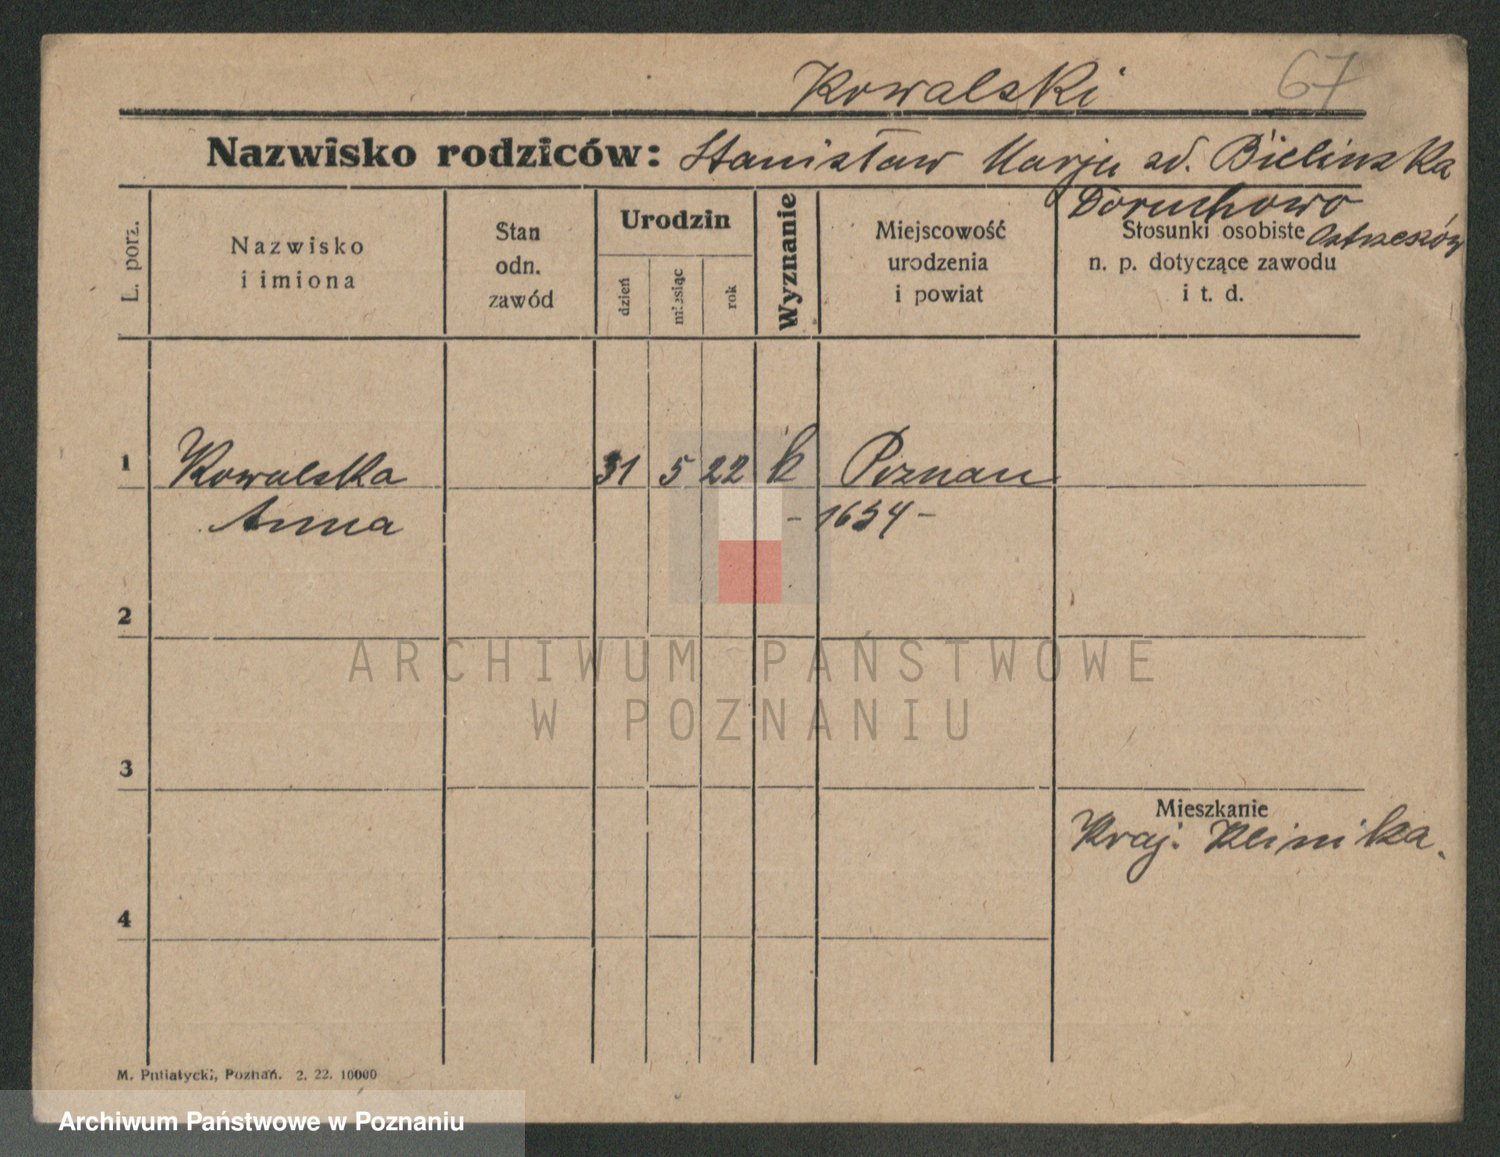 Kowalski 67
Nazwisko rodziców: Stanisław Marja zd. Bielinska
Doruchowo
Ostrzeszów
L. porz.
Nazwisko
i imiona
Stan
odn.
zawód
Urodzin
dzień
miesiąc
rok
Wyznanie
Miejscowość
urodzenia
i powiat
Stosunki osobiste
n. p. dotyczące zawodu
i t. d.
1 Kowalska 31 5 22 k Poznan
Anna - 1654 -
2
ARCHIWUM PAŃSTWOWE
W POZNANIU
3
Mieszkanie
Kraj. Klinika.
4
M. Putiatycki, Poznań. 2. 22. 10000
Archiwum Państwowe w Poznaniu